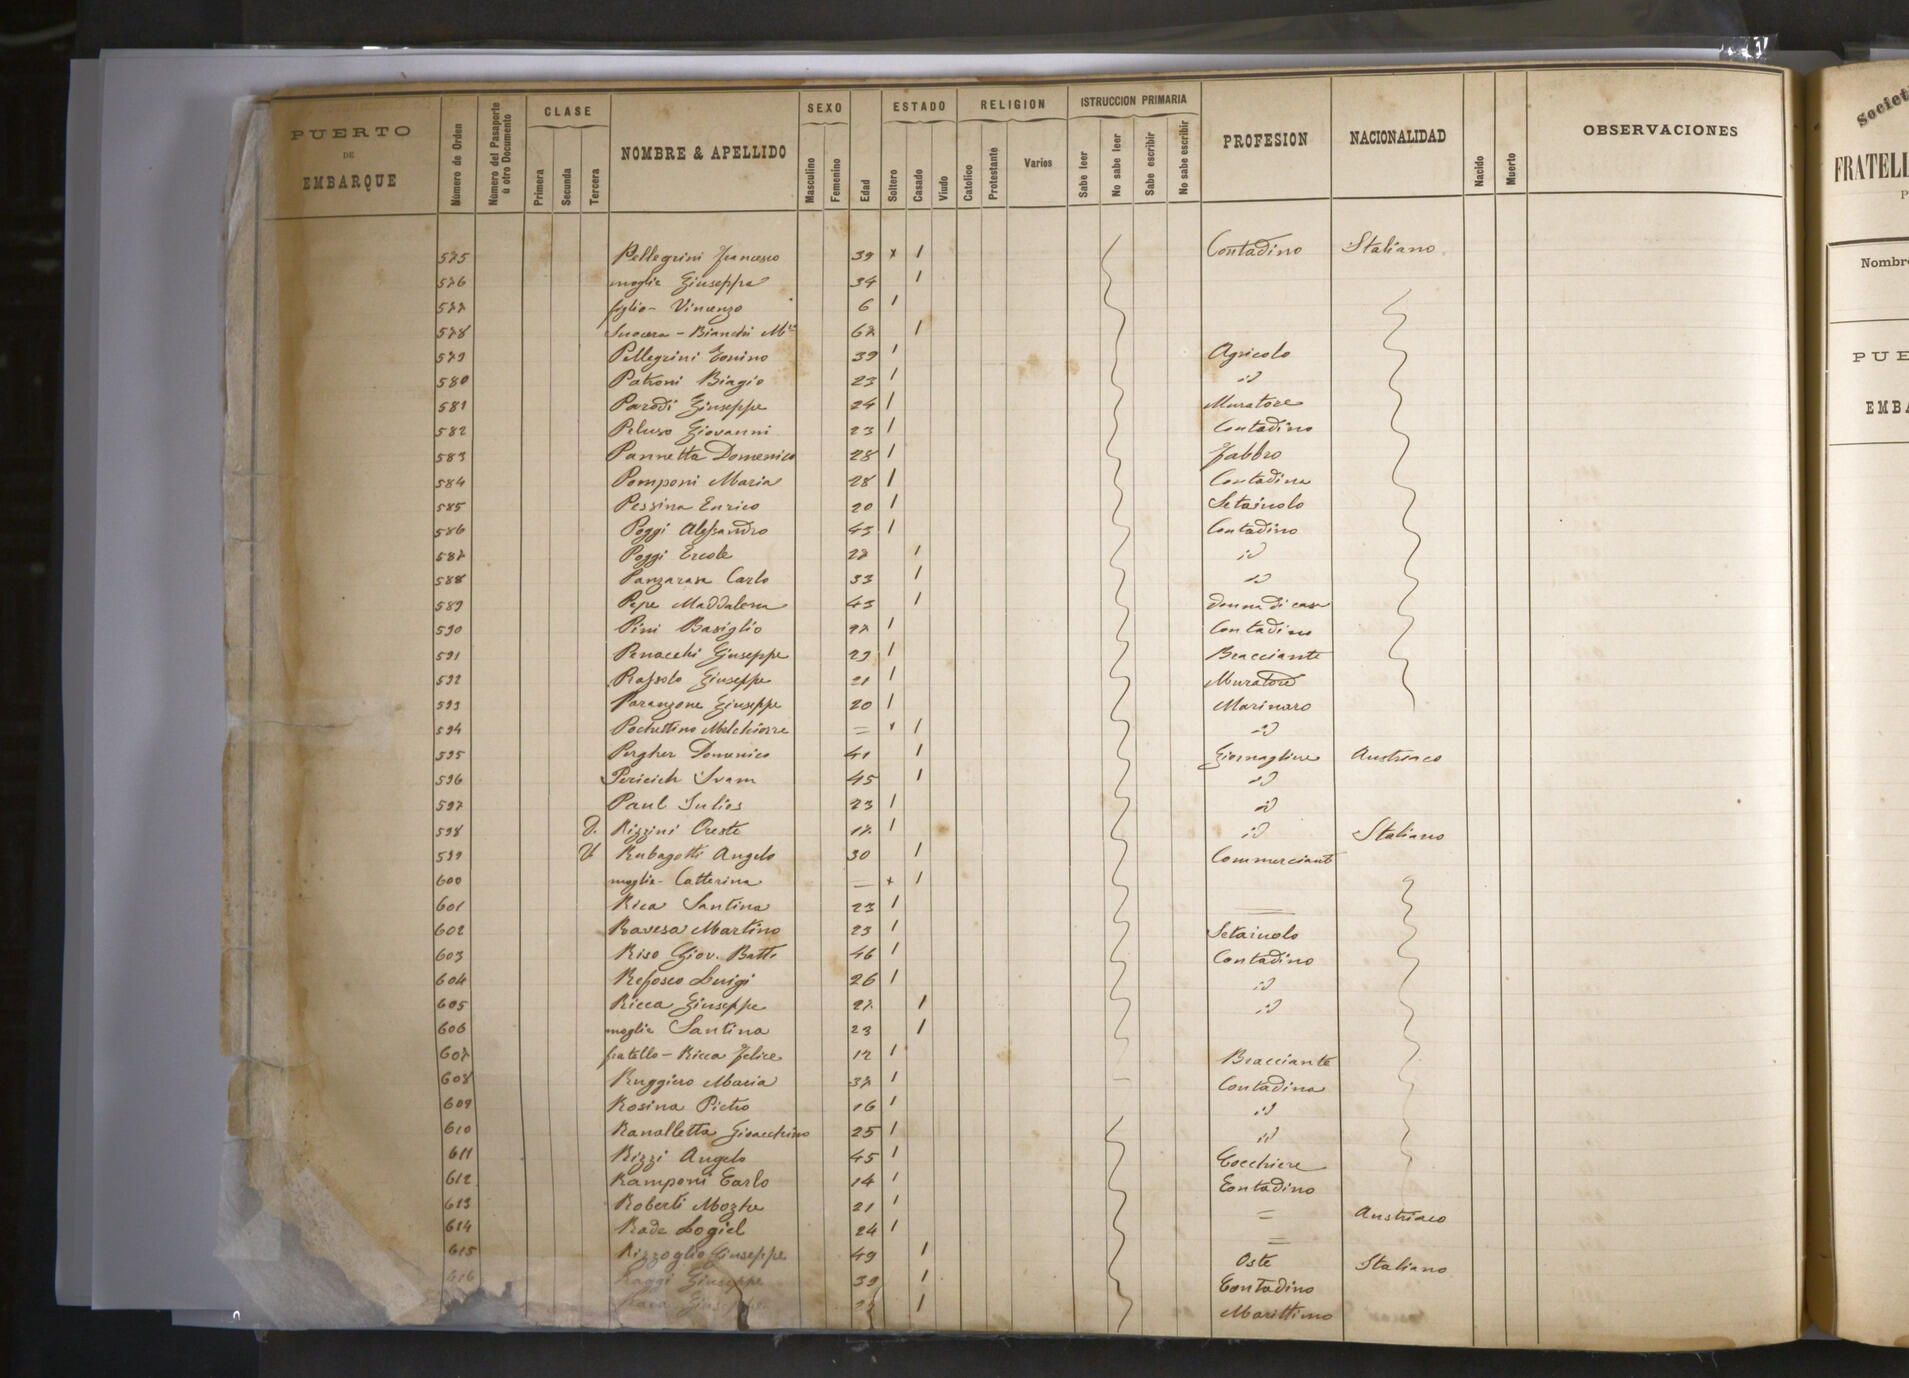 PUERTO DE EMBARQUE Número de Orden Número del Pasaporte ú otro Documento CLASE Primera Segunda Tercera NOMBRE & APELLIDO SEXO Masculino Femenino Edad ESTADO Soltero Casado Viudo RELIGION Catolico Protestante Varios ISTRUCCION PRIMARIA Sabe leer No sabe leer Sabe escribir No sabe escribir PROFESION NACIONALIDAD Nacido Muerto OBSERVACIONES
575 Pellegrini Francesco 39 x / Contadino Italiano
576 moglie Giuseppa 34 /
577 figlio - Vincenzo 6 /
578 Suocera - Bianchi Mª 67 /
579 Pellegrini Tonino 39 / Agricolo
580 Patroni Biagio 23 / id
581 Parodi Giuseppe 24 / Muratore
582 Peluso Giovanni 23 / Contadino
583 Pannetta Domenico 28 / Fabbro
584 Pomponi Maria 28 / Contadina
585 Pessina Enrico 20 / Setaiuolo
586 Poggi Alessandro 43 / Contadino
587 Poggi Ercole 27 / id
588 Panzarasa Carlo 33 / id
589 Pepe Maddalena 43 / Donna di casa
590 Pini Basiglio 27 / Contadino
591 Penacchi Giuseppe 29 / Bracciante
592 Giuseppe 21 / Muratore
593 Paranzone Giuseppe 20 / Marinaro
594 Pochettino Melchiorre = x / id
595 Pergher Domenico 41 / Giornagliere Austriaco
596 Pericich Ivam 45 / id
597 Paul Julies 23 / id
598 Rizzini Oreste 17 / id Italiano
599 Rubagotti Angelo 30 / Commerciante
600 moglie - Catterina = x / 
601 Rica Santina 23 / =
602 Ravesa Martino 23 / Setaiuolo
603 Riso Giov. Batta 46 / Contadino
604 Refosco Luigi 26 / id
605 Ricca Giuseppe 27 / id
606 moglie Santina 23 /
607 fratello - Ricca Felice 12 / Bracciante
608 Ruggiero Maria 37 / Contadina
609 Rosina Pietro 16 / id
610 Ranalletta Gioacchino 25 / id
611 Rizzi Angelo 45 / Cocchiere
612 Ramponi Carlo 14 / Contadino
613 Roberti Mozhe 21 / = Austriaco
614 Rade Logiel 24 / =
615 Rizzoglio Giuseppe 49 / Oste Italiano
616 Raggi Giuseppe 39 / Contadino
Giuseppe / Marittimo
Societ
FRATELL
P
Nombre
PUE
EMBA